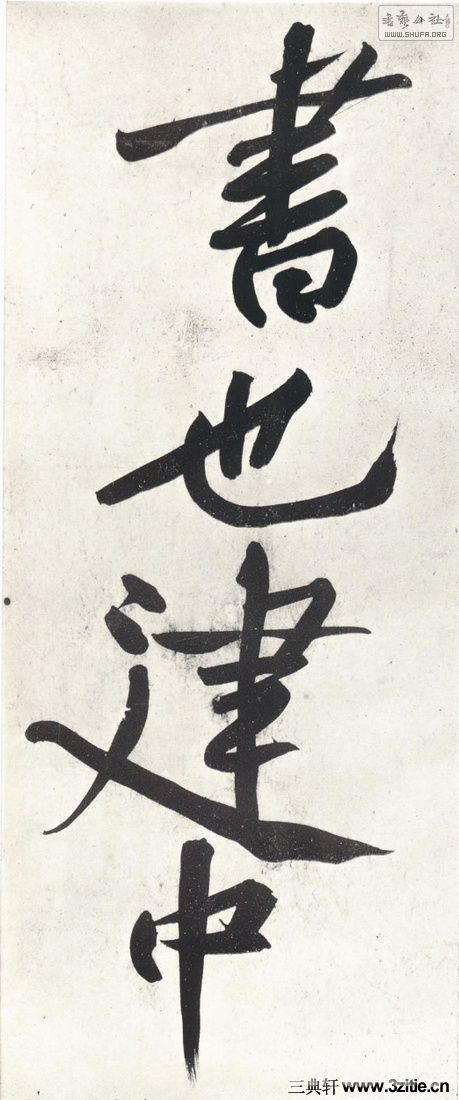 書藝公社
WWW.SHUFA.ORG
書也建中
三典轩 www.3zitie.cn